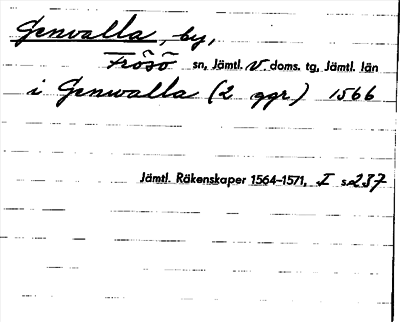 Genvalla, by,
Frösö sn, Jämtl. V. doms. tg, Jämtl. län
i Genwalla (2 ggr) 1566
Jämtl. Räkenskaper 1564-1571, I s. 237